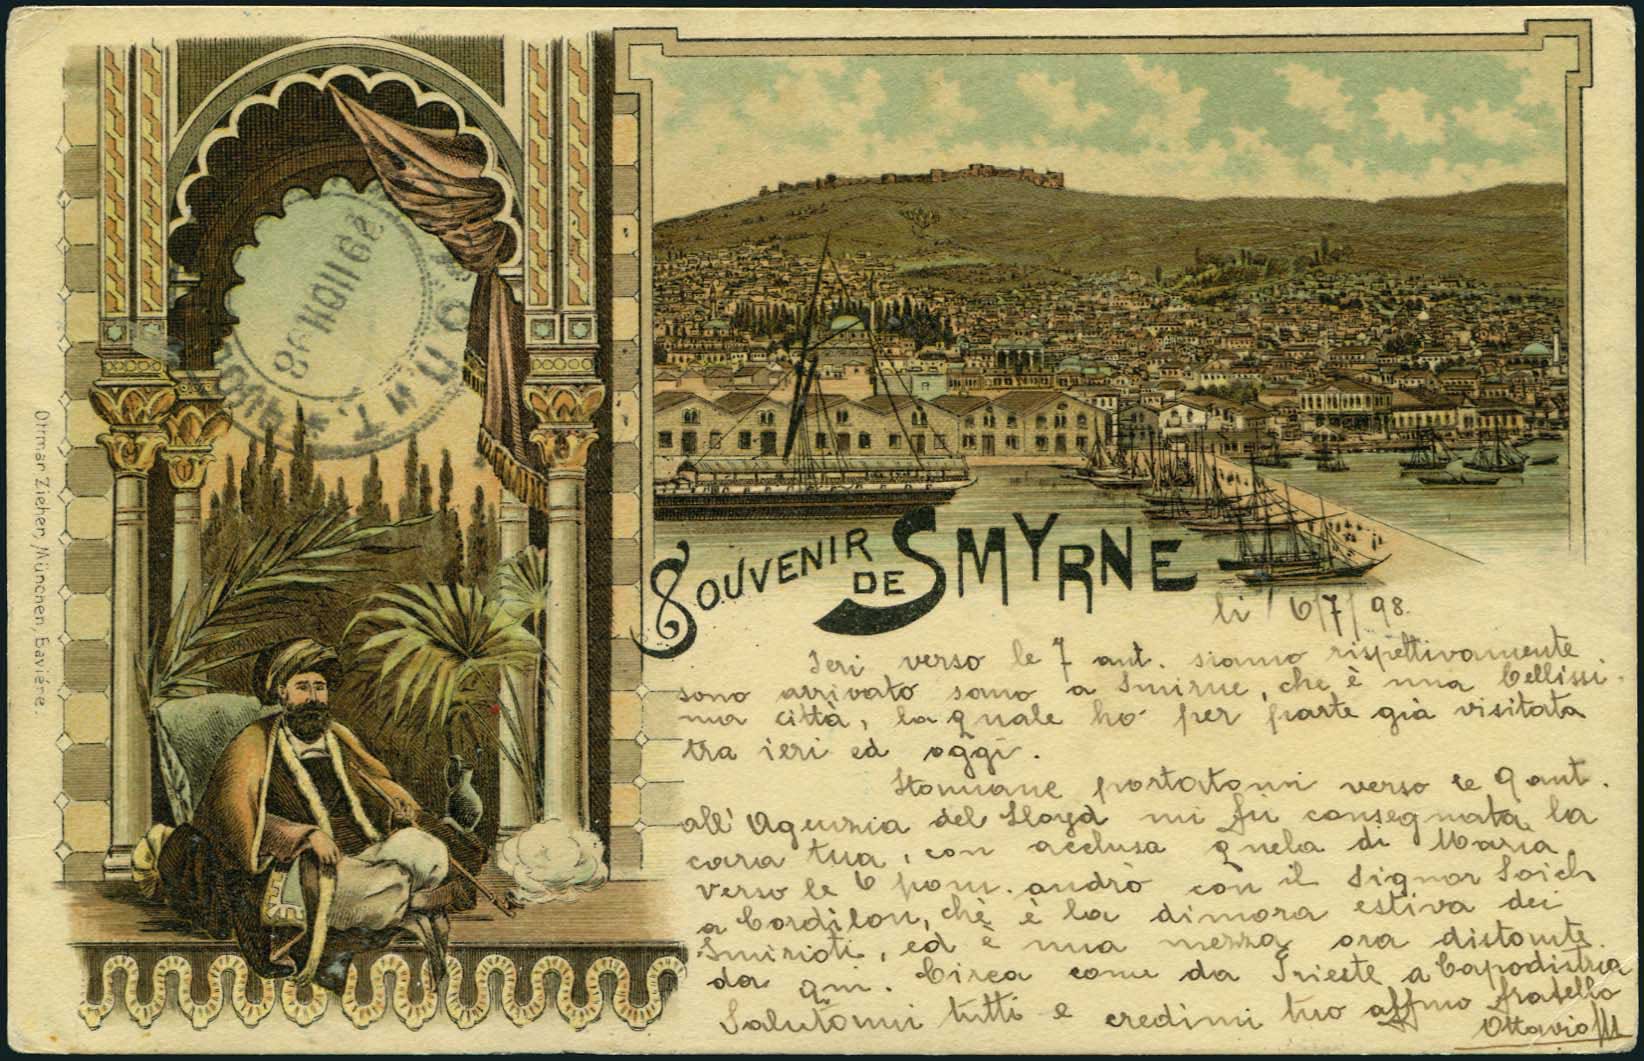 SOUVENIR DE SMYRNE
li 6/7/98.
Ieri verso le 7 ant. siamo rispettivamente
sono arrivato sano a Smirne, che è una bellissi-
ma città, la quale ho per parte già visitata
tra ieri ed oggi.
Stamane portatomi verso le 9 ant.
all' Agenzia del Lloyd mi fù consegnata la
cara tua, con acclusa quela di Maria.
verso le 6 pom. andrò con il Signor
a Cordilou, chè è la dimora estiva dei
Smirioti, ed è una mezza ora distante
da qui. Circa come da Trieste a Capodistria
Salutami tutti e credimi tuo affmo fratello
Ottavio
Ottmar Zieher, München, Bavière.